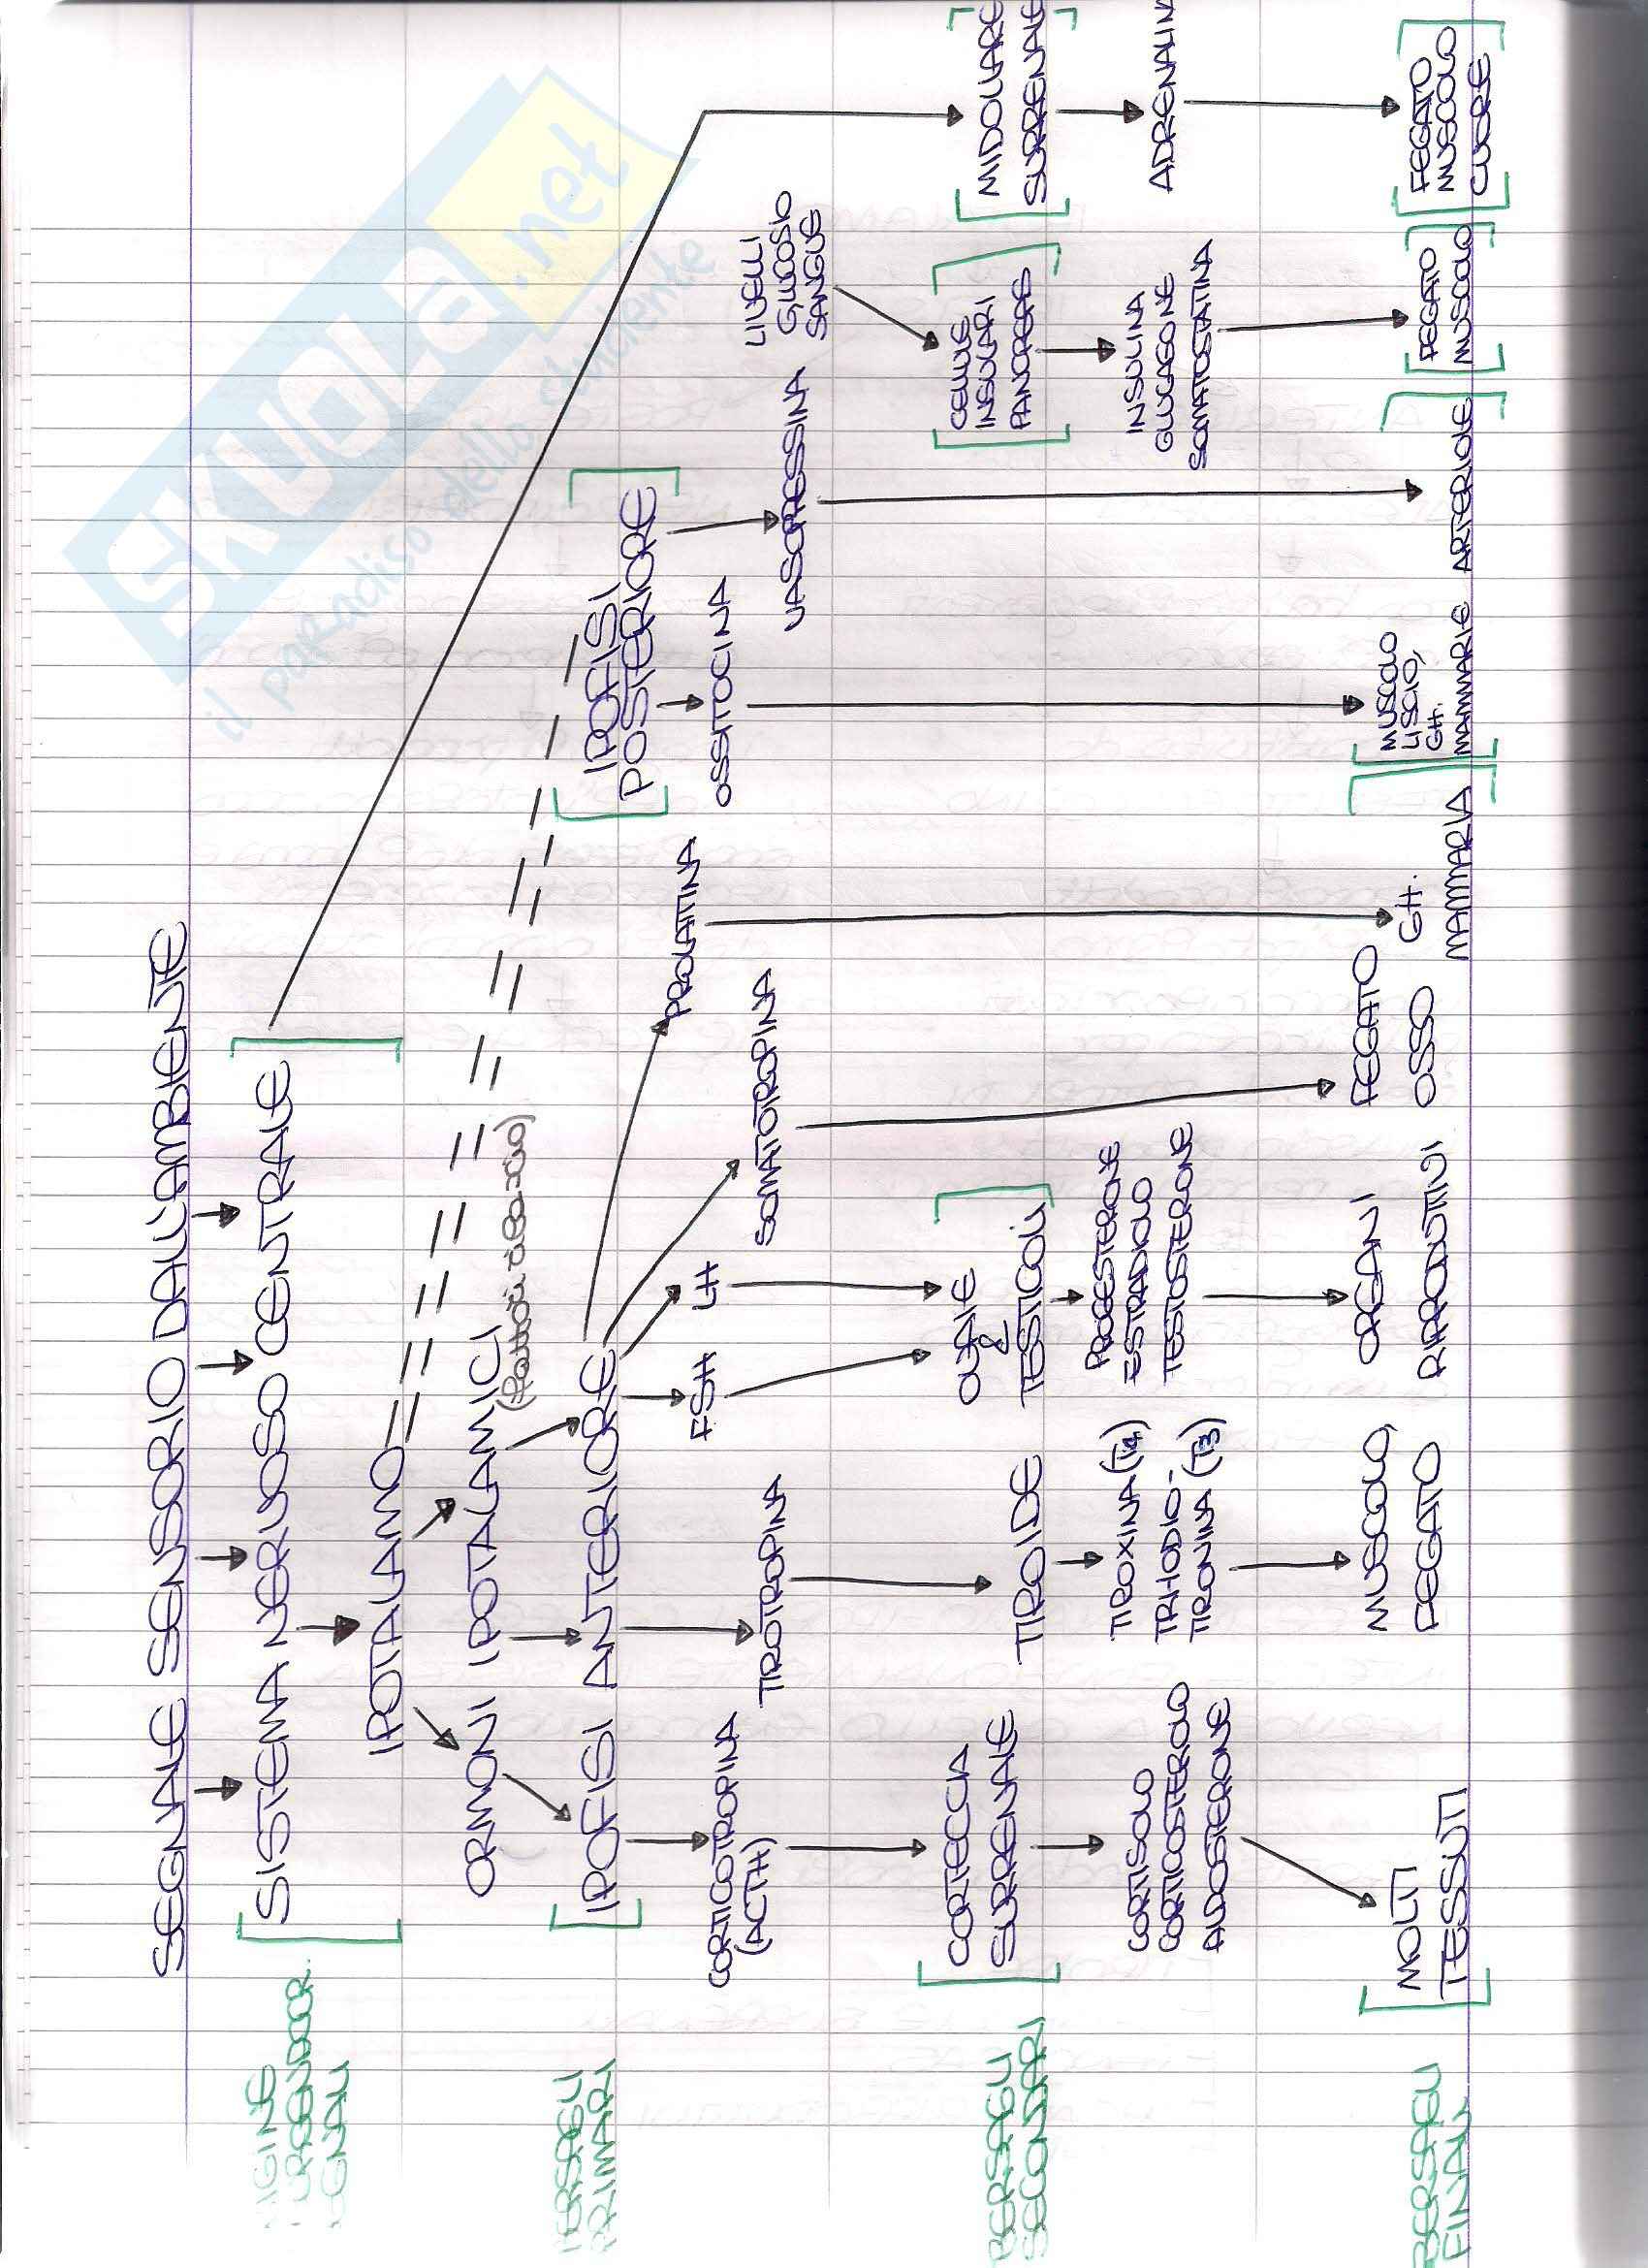 SEGNALE SENSORIO DALL'AMBIENTE
SISTEMA NERVOSO CENTRALE
IPOTALAMO
ORMONI IPOTALAMICI
(fattori di rilascio)
IPOFISI ANTERIORE
IPOFISI
POSTERIORE
CORTICOTROPINA
(ACTH)
TIROTROPINA
FSH
LH
SOMATOTROPINA
PROLATTINA
OSSITOCINA
VASOPRESSINA
LIVELLI
GLUCOSIO
SANGUE
BERSAGLI
PRIMARI
BERSAGLI
SECONDARI
CORTECCIA
SURRENALE
TIROIDE
OVAIE
&
TESTICOLI
CELLULE
INSULARI
PANCREAS
MIDOLLARE
SURRENALE
CORTISOLO
CORTICOSTEROLO
ALDOSTERONE
TIROXINA (T4)
TRIHODIO-
TIRONINA (T3)
PROGESTERONE
ESTRADIOLO
TESTOSTERONE
INSULINA
GLUCAGONE
SOMATOSTATINA
ADRENALIN
BERSAGLI
FINALI
MOLTI
TESSUTI
MUSCOLO,
FEGATO
ORGANI
RIPRODUTTIVI
FEGATO
OSSO
GH.
MAMMARIA
MUSCOLO
LISCIO,
GH.
MAMMARIE
ARTERIOLE
FEGATO
MUSCOLO
FEGATO
MUSCOLO
CUORE
SKUOLA.net
il paradiso dello studente